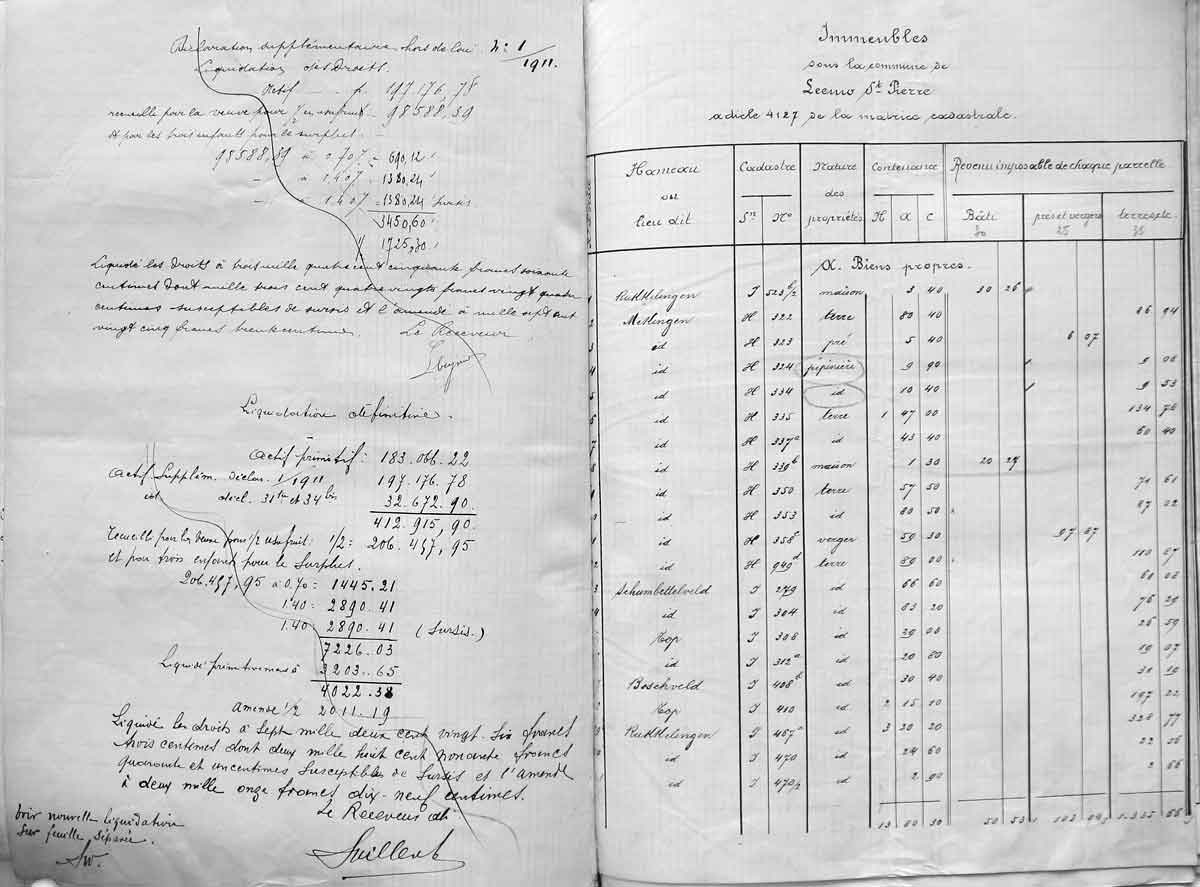 Déclaration supplémentaire hors de loi N° 1/1911.
Liquidation des Droits.
Actif f. 197.176,78
recueille par la veuve pour 1/2 en usufruit = 98588,39
et par les trois enfants pour le surplus : -
98588,39 à 0.70% = 690,12
à 1.40% = 1380,24
à 1.40% = 1380,24 Sursis
3450,60
1/2 1725,30
Liquidé les droits à trois mille quatre cent cinquante francs soixante
centimes dont mille trois cent quatre vingts francs vingt quatre
centimes susceptibles de sursis et l'amende à mille sept cent
vingt cinq francs trente centimes. Le Receveur
Liquidation définitive.
Actif primitif : 183.066.22
Actif Supplém. déclar. 1/1911 197.176.78
id décl. 31 et 34 bis 32.672.90
412.915,90
recueille par la veuve pour 1/2 usufruit : 1/2 : 206.457,95
et par trois enfants pour le Surplus.
206.457,95 à 0.70 = 1445.21
1.40 : 2890.41
1.40 2890.41 (Sursis.)
7226.03
Liquidé primitivement à 3203.65
4022.38
Amende 1/2 2011.19
Liquidé les droits à Sept mille deux cent vingt-six francs
trois centimes dont deux mille huit cent nonante francs
quarante et un centimes susceptibles de Sursis et l'amende
à deux mille onze francs dix-neuf centimes.
Le Receveur
voir nouvelle liquidation
sur feuille séparée.
Immeubles
sous la commune de
Leeuw St Pierre
article 4127 de la matrice cadastrale.
Hameau ou lieu dit Cadastre Sn No Nature des propriétés Contenance H A C Revenu imposable de chaque parcelle Bâti prés et vergers 25 terres etc. 35
A. Biens propres.
Ruckkelingen J 523 b/2 maison 3 40 30 26
Mettingen H 322 terre 80 40 86 94
id H 323 pré 5 40 6 07
id H 324 pépinière 9 90 9 08
id H 334 id 10 40 9 53
id H 335 terre 1 47 00 134 76
id H 337a id 43 40 60 40
id H 339b maison 1 30 20 27
id H 350 terre 57 50 71 61
id H 353 id 80 50 87 22
id H 358c verger 59 30 97 67
id H 949d terre 89 00 110 67
Schumbettelveld J 279 id 66 60 61 02
id J 304 id 83 20 76 29
Hop J 306 id 29 00 26 59
id J 312a id 20 80 19 07
Boschveld J 408b id 30 40 31 10
Hop J 410 id 2 15 10 197 22
Ruckkelingen J 467a id 3 20 20 328 77
id J 470 id 24 60 22 56
id J 470/2 id 2 90 2 66
13 60 30 50 53 103 1.335 66